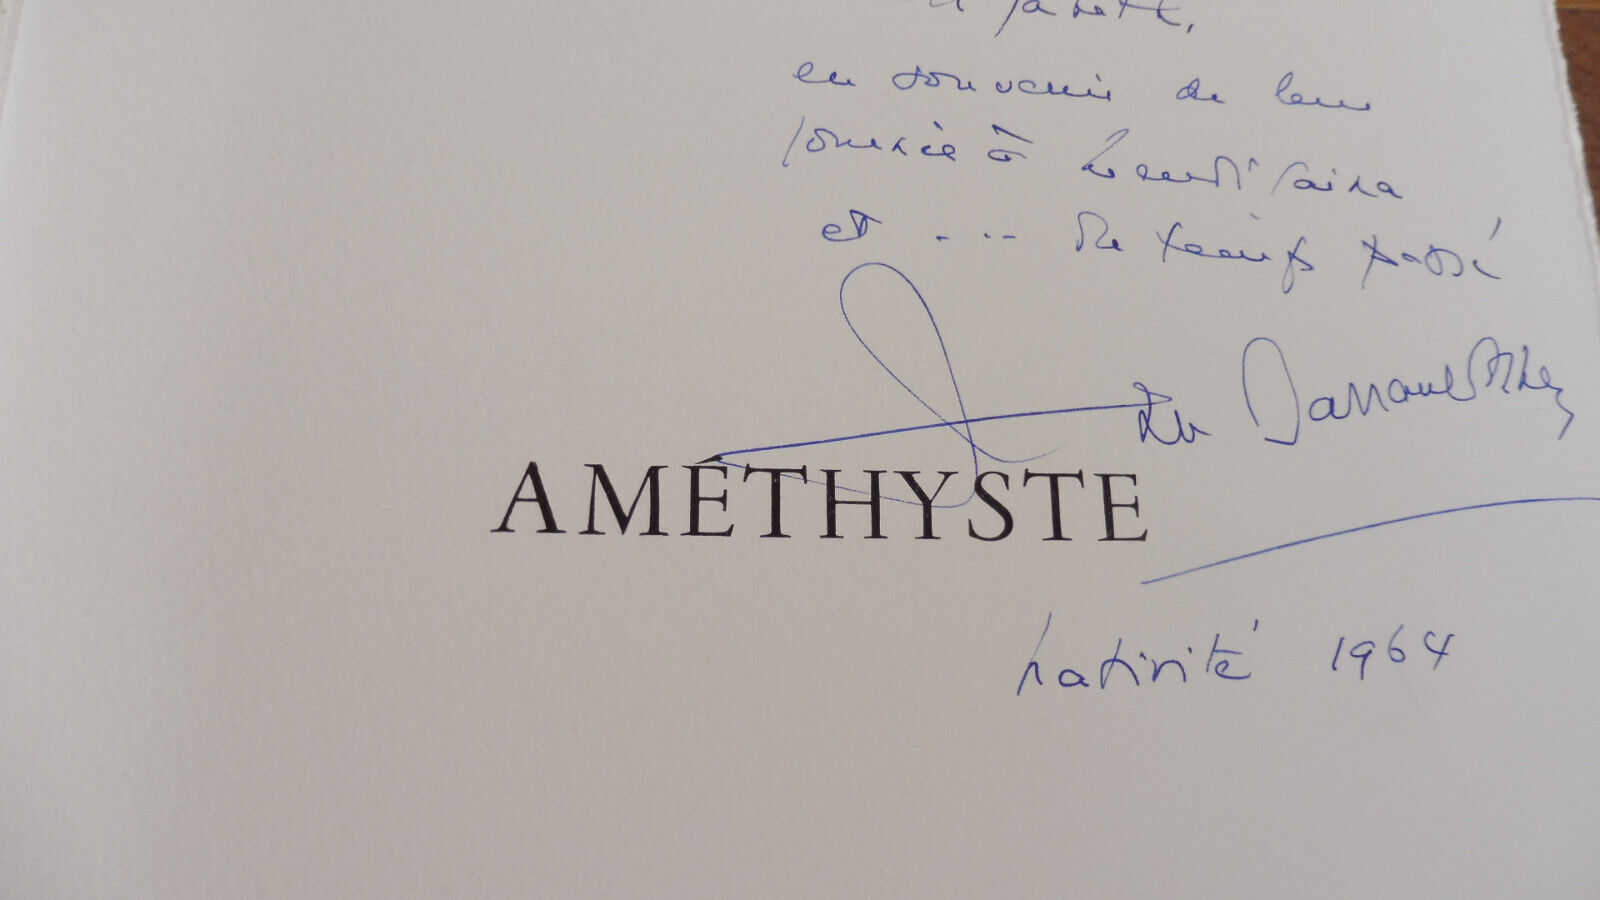 en souvenir de leur
journée à
et ... du temps passé
Dr
AMÉTHYSTE
Nativité 1964